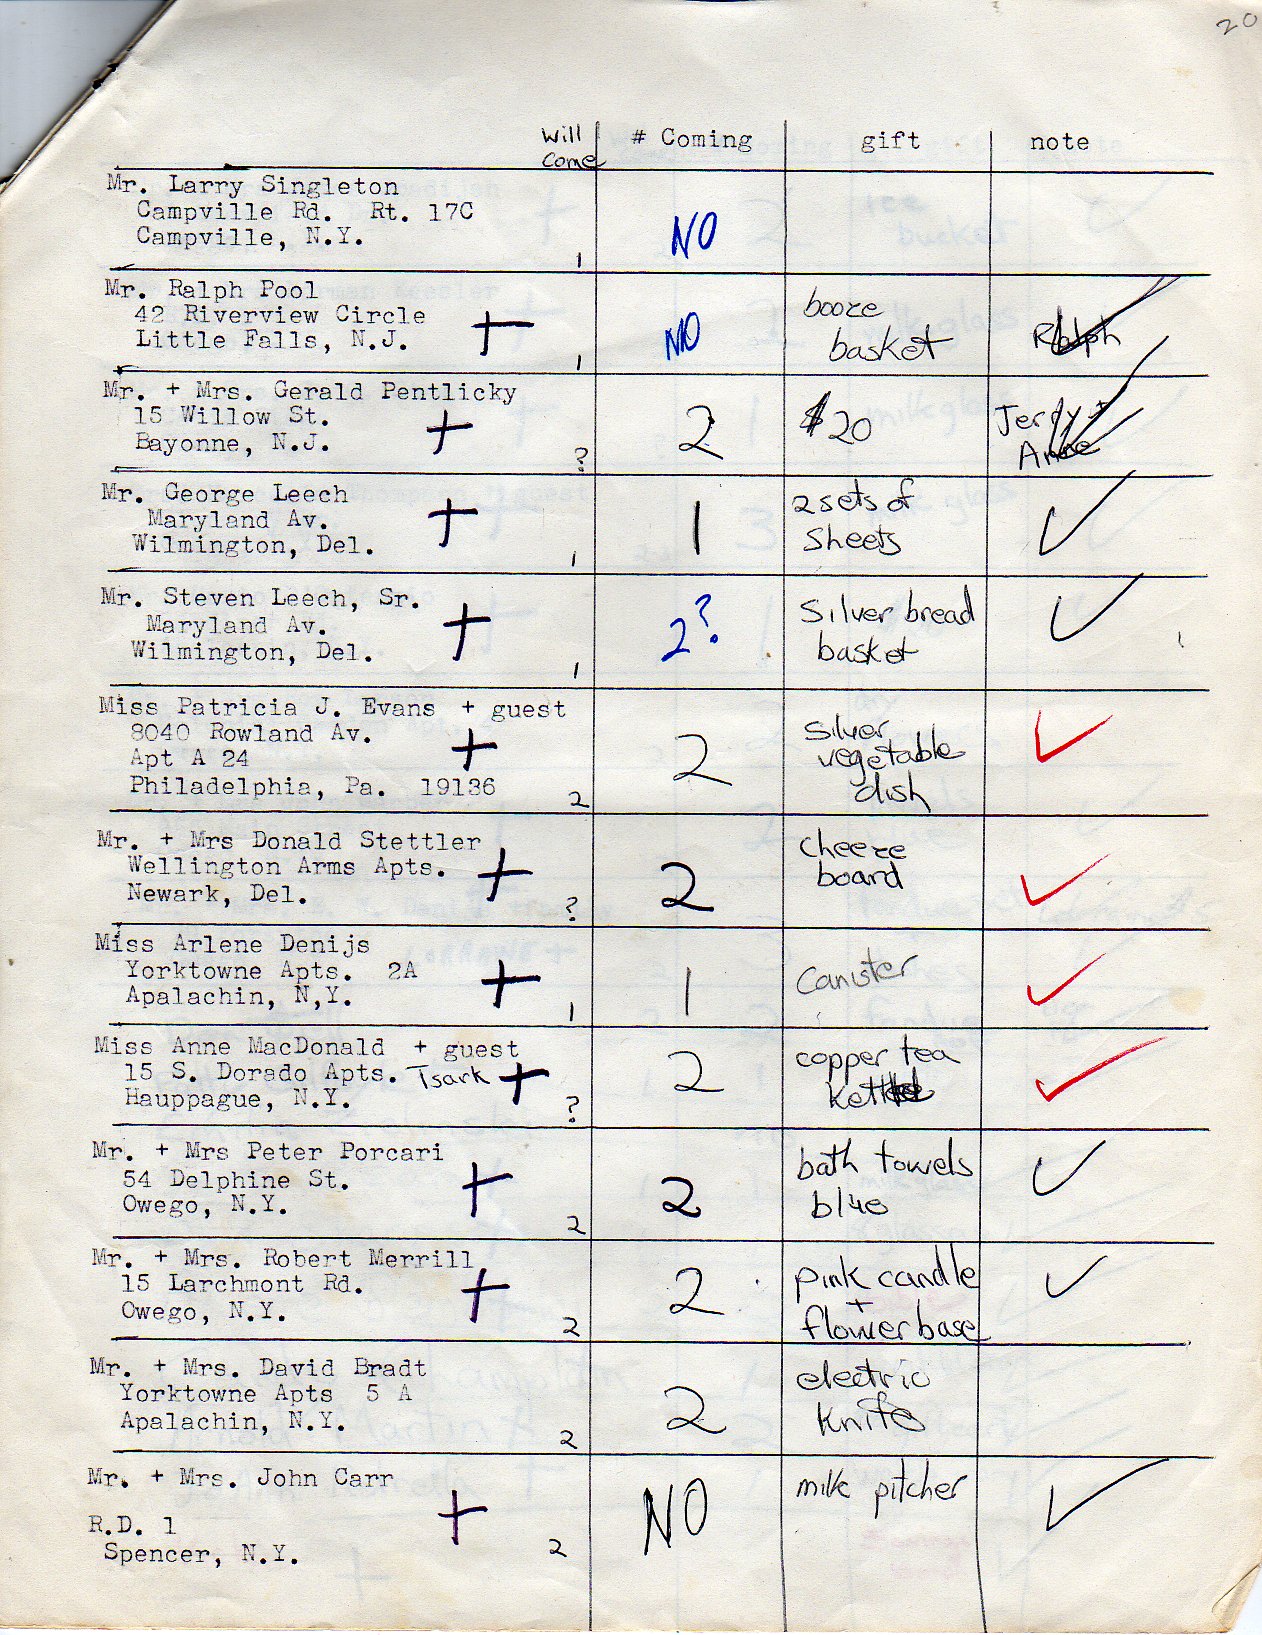 20
Will Come # Coming gift note
Mr. Larry Singleton
Campville Rd. Rt. 17C
Campville, N.Y.
1 NO
Mr. Ralph Pool
42 Riverview Circle
Little Falls, N.J.
+ 1 NO
booze
basket
Ralph
Mr. + Mrs. Gerald Pentlicky
15 Willow St.
Bayonne, N.J.
+ ? 2 $20
Jerry +
Anne
Mr. George Leech
Maryland Av.
Wilmington, Del.
+ 1 1
2 sets of
Sheets
✓
Mr. Steven Leech, Sr.
Maryland Av.
Wilmington, Del.
+ 1 2?
Silver bread
basket
✓
Miss Patricia J. Evans + guest
8040 Rowland Av.
Apt A 24
Philadelphia, Pa. 19136
+ 2 2
silver
vegetable
dish
✓
Mr. + Mrs Donald Stettler
Wellington Arms Apts.
Newark, Del.
+ ? 2
cheeze
board
✓
Miss Arlene Denijs
Yorktowne Apts. 2A
Apalachin, N,Y.
+ 1 1
Canister
✓
Miss Anne MacDonald + guest
15 S. Dorado Apts. Tsark
Hauppague, N.Y.
+ ? 2
copper tea
kettle
✓
Mr. + Mrs Peter Porcari
54 Delphine St.
Owego, N.Y.
+ 2 2
bath towels
blue
✓
Mr. + Mrs. Robert Merrill
15 Larchmont Rd.
Owego, N.Y.
+ 2 2
pink candle
+
flower base
✓
Mr. + Mrs. David Bradt
Yorktowne Apts 5 A
Apalachin, N.Y.
2 2
electric
knife
Mr. + Mrs. John Carr
R.D. 1
Spencer, N.Y.
+ 2 NO
milk pitcher
✓